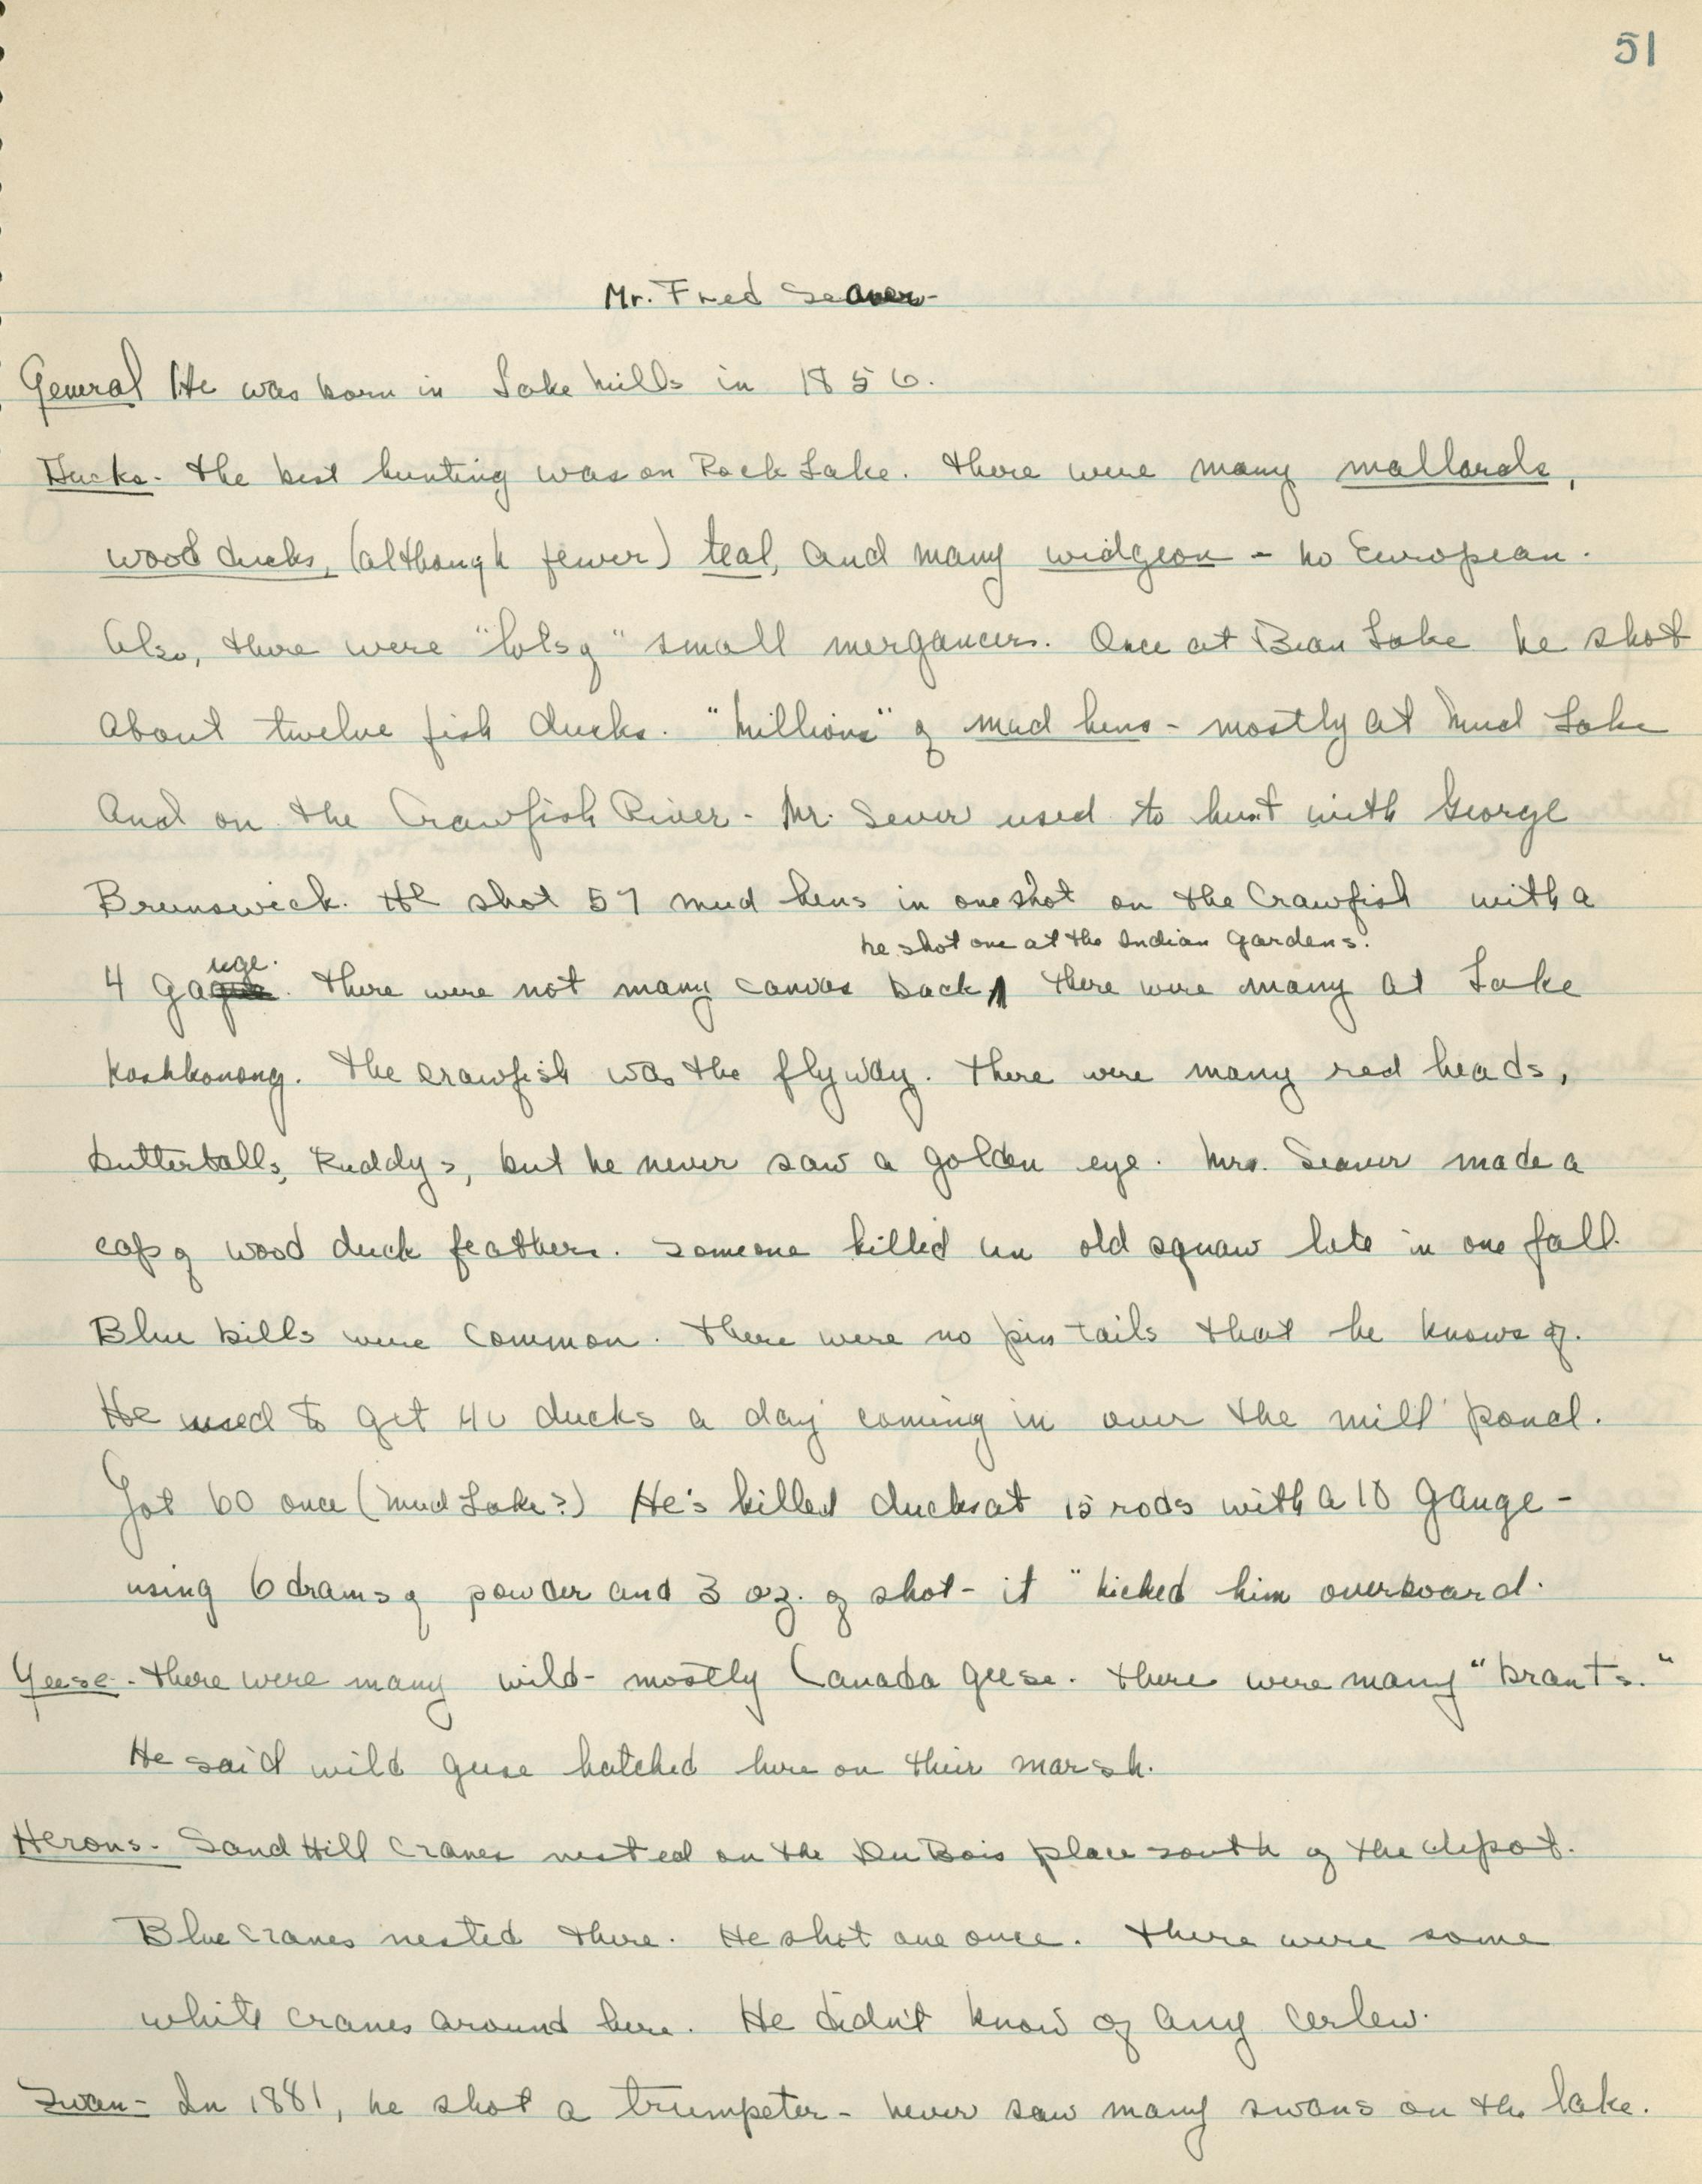 51
Mr. Fred Seaver-
General He was born in Lake Mills in 1856.
Ducks- The best hunting was on Rock Lake. There were many mallards,
wood ducks, (although fewer) teal, and many widgeon - no European.
Also, there were "lots of" small mergancers. Once at Bean Lake he shot
about twelve fish ducks. "Millions" of mud hens - mostly at Mud Lake
And on the Crawfish River - Mr. Sever used to hunt with George
Brunswick. He shot 57 mud hens in one shot on the Crawfish with a
he shot one at the Indian Gardens.
4 gauge. There were not many canvas back ∧ There were many at Lake
Koshkonong. The crawfish was the flyway. There were many red heads,
butterballs, Ruddys, but he never saw a golden eye. Mrs. Seaver made a
cap of wood duck feathers. Someone killed an old squaw late in one fall.
Blue bills were common. There were no pin tails that he knows of.
He used to get 40 ducks a day coming in over the mill pond.
Got 60 once (Mud Lake?) He's killed ducks at 15 rods with a 10 gauge -
using 6 drams of powder and 3 oz. of shot - it "kicked him overboard.
Geese - There were many wild - mostly Canada geese. There were many "brants."
He said wild geese hatched here on their marsh.
Herons - Sand Hill Cranes nested on the DuBois place south of the depot.
Blue cranes nested there. He shot one once. There were some
white cranes around here. He didn't know of any cerlew.
Swan - In 1881, he shot a trumpeter - never saw many swans on the lake.